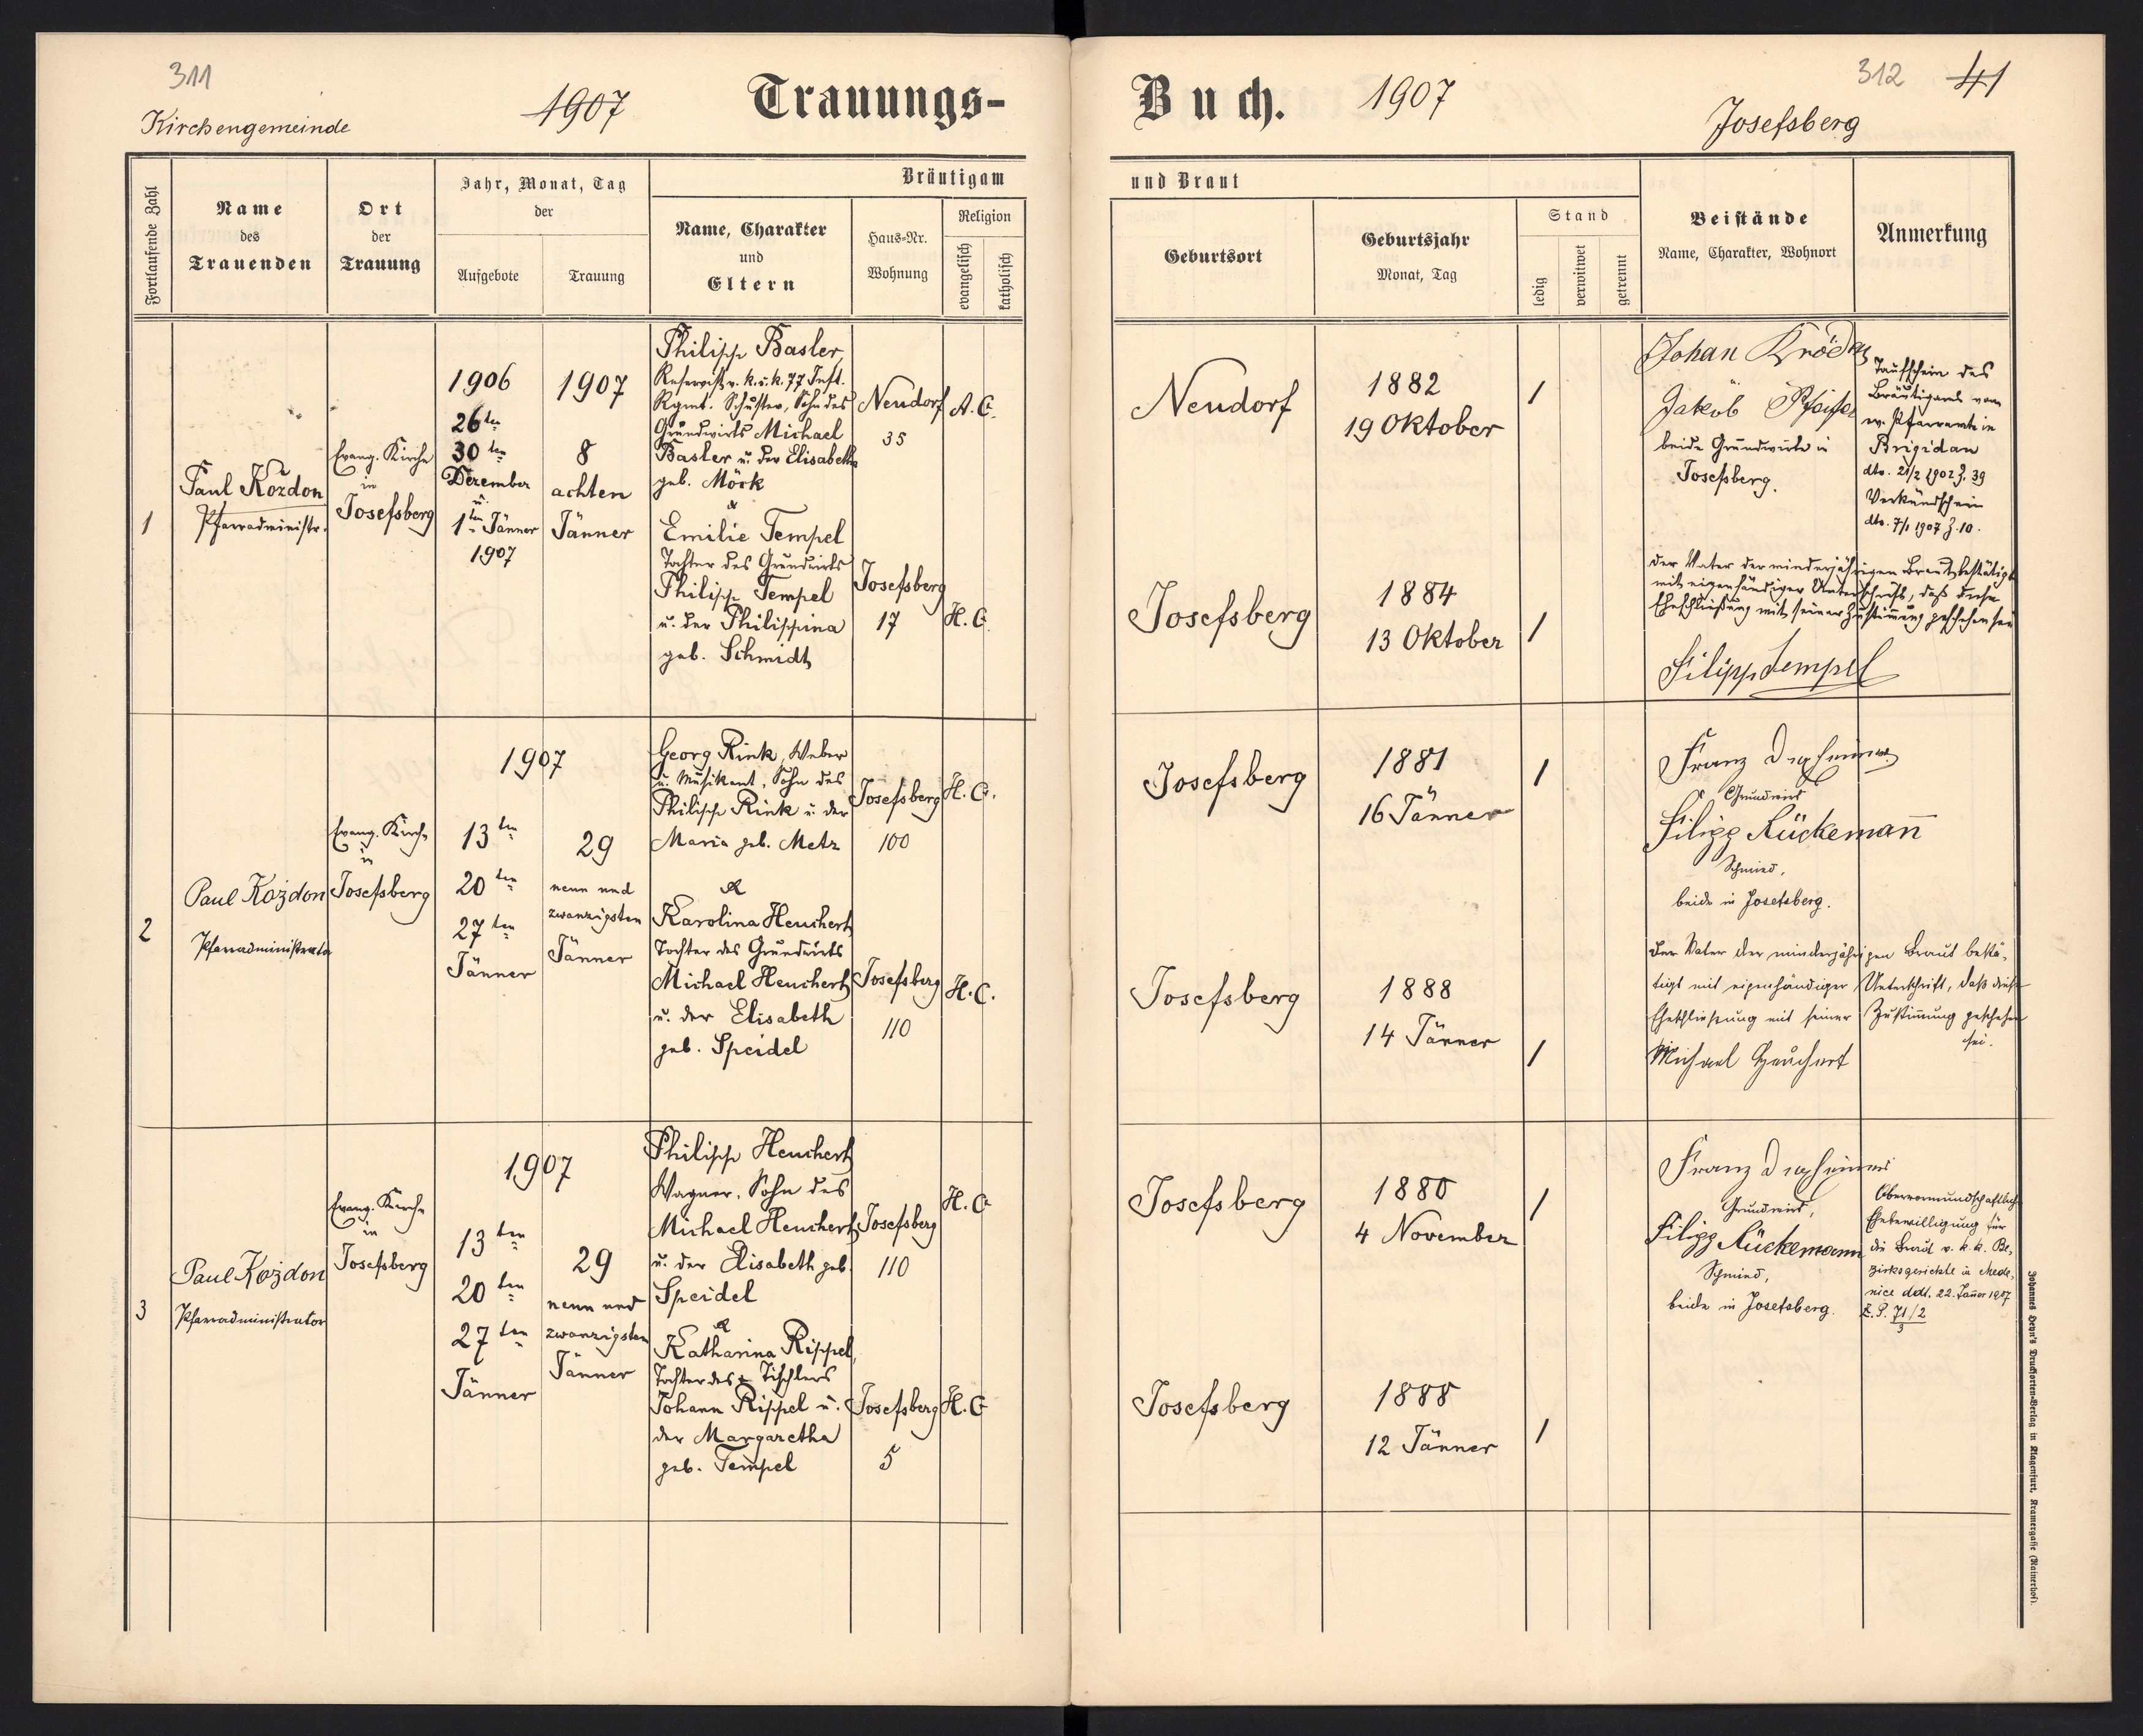 311
Kirchengemeinde
1907
Trauungs-
Buch.
1907
312
41
Josefsberg
Fortlaufende Zahl
Name
des
Trauenden
Ort
der
Trauung
Jahr, Monat, Tag
der
Aufgebote
Trauung
Bräutigam
Name, Charakter
und
Eltern
Haus-Nr.
Wohnung
Religion
evangelisch
katholisch
und Braut
Geburtsort
Geburtsjahr
Monat, Tag
Stand
ledig
verwitwet
getrennt
Beistände
Name, Charakter, Wohnort
Anmerkung
1
Paul Kozdon
Pfarradministr.
Evang. Kirche
in
Josefsberg
1906
26ten
30ten
Dezember
u.
1ten Jänner
1907
1907
8
achten
Jänner
Philipp Basler,
Reservist v. k. u. k. 77 Inft.
Rgmt. Schuster, Sohn des
Grundwirts Michael
Basler u. der Elisabeth
geb. Möck
&
Emilie Tempel
Tochter des Grundwirts
Philipp Tempel
u. der Philippina
geb. Schmidt
Neudorf
35
A. C.
Josefsberg
17
H. C.
Neudorf
1882
19 Oktober
/
Josefsberg
1884
13 Oktober
/
Johan
Jakob Pfeifer
beide Grundwirte in
Josefsberg.
Taufschein des
Bräutigams vom
ev. Pfarramte in
Brigidau
dto. 21/2 1902 Z. 39
Verkündschein
dto. 7/1 1907 Z. 10.
Der Vater der minderjährigen Braut bestätigt
mit eigenhändiger Unterschrift, daß diese
Eheschließung mit seiner Zustimmung geschehen sei
Filipp Tempel
2
Paul Kozdon
Pfarradministrator
Evang. Kirche
in
Josefsberg
1907
13ten
20ten
27ten
Jänner
29
neun und
zwanzigsten
Jänner
Georg Rink, Weber
u. Musikant, Sohn des
Philipp Rink u. der
Maria geb. Metz
&
Karolina Heuchert
Tochter des Grundwirts
Michael Heuchert
u. der Elisabeth
geb. Speidel
Josefsberg
100
H. C.
Josefsberg
110
H. C.
Josefsberg
1881
16 Jänner
/
Josefsberg
1888
14 Jänner
/
Franz
Grundwirt
Filipp Rückemann
Schmied,
beide in Josefsberg.
Der Vater der minderjährigen Braut bestä-
tigt mit eigenhändiger Unterschrift, daß diese
Eheschließung mit seiner Zustimmung geschehen
sei.
Michael Heuchert
3
Paul Kozdon
Pfarradministrator
Evang. Kirche
in
Josefsberg
1907
13ten
20ten
27ten
Jänner
29
neun und
zwanzigsten
Jänner
Philipp Heuchert
Wagner, Sohn des
Michael Heuchert
u. der Elisabeth geb.
Speidel
&
Katharina Rippel,
Tochter des + Tischlers
Johann Rippel u.
der Margaretha
geb. Tempel
Josefsberg
110
H. C.
Josefsberg
5
H. C.
Josefsberg
1880
4 November
/
Josefsberg
1888
12 Jänner
/
Franz
Grundwirt,
Filipp Rückemann
Schmied,
beide in Josefsberg.
Obervormundschaftliche
Ehebewilligung für
die Braut v. k. k. Be-
zirksgerichte in Mede-
nice ddt. 22. Jänner 1907
L. P. 71/2
3
Johannes Heyn's Drucksorten-Verlag in Klagenfurt, Kramergasse (Rainerhof).